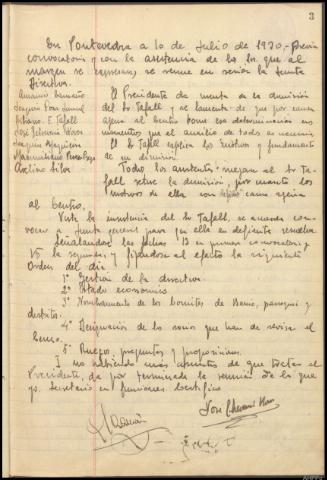 3
En Pontevedra a 10 de julio de 1930, - Previa
convocatoria y con la asistencia de los Sres que al
margen se expresan, se reune en sesión la Junta
Directiva.
El Presidente da cuenta de la dimision
del Sr Tafall y se lamenta de que por causa
ajena al Centro tome esa determinación en
momentos que el auxilio de todos es necesario
El Sr Tafall explica los motivos y fundamento
de su dimision.
Todos los asistentes ruegan al Sr Ta-
fall retire la dimision, por cuanto los
motivos de ella son causa ajena
al Centro.
Vista la insistencia del Sr Tafall, se acuerda con-
vocar a Junta general para que ella en definitiva resuelva
señalandose las fechas 13 en primera convocatoria y
15 la segunda, y fijandose al efecto la siguiente
Orden del dia
1º Gestion de la directiva.
2º Estado economico
3º Nombramiento de los Comites de Barrio, parroquia y
distrito.
4º Designacion de los socios que han de revisar el
Censo.
5º Ruegos, preguntas y proposiciones.
Y no habiendo mas asuntos de que tratar el
Presidente, da por terminada la reunion de lo que
yo Secretario en funciones Certifico